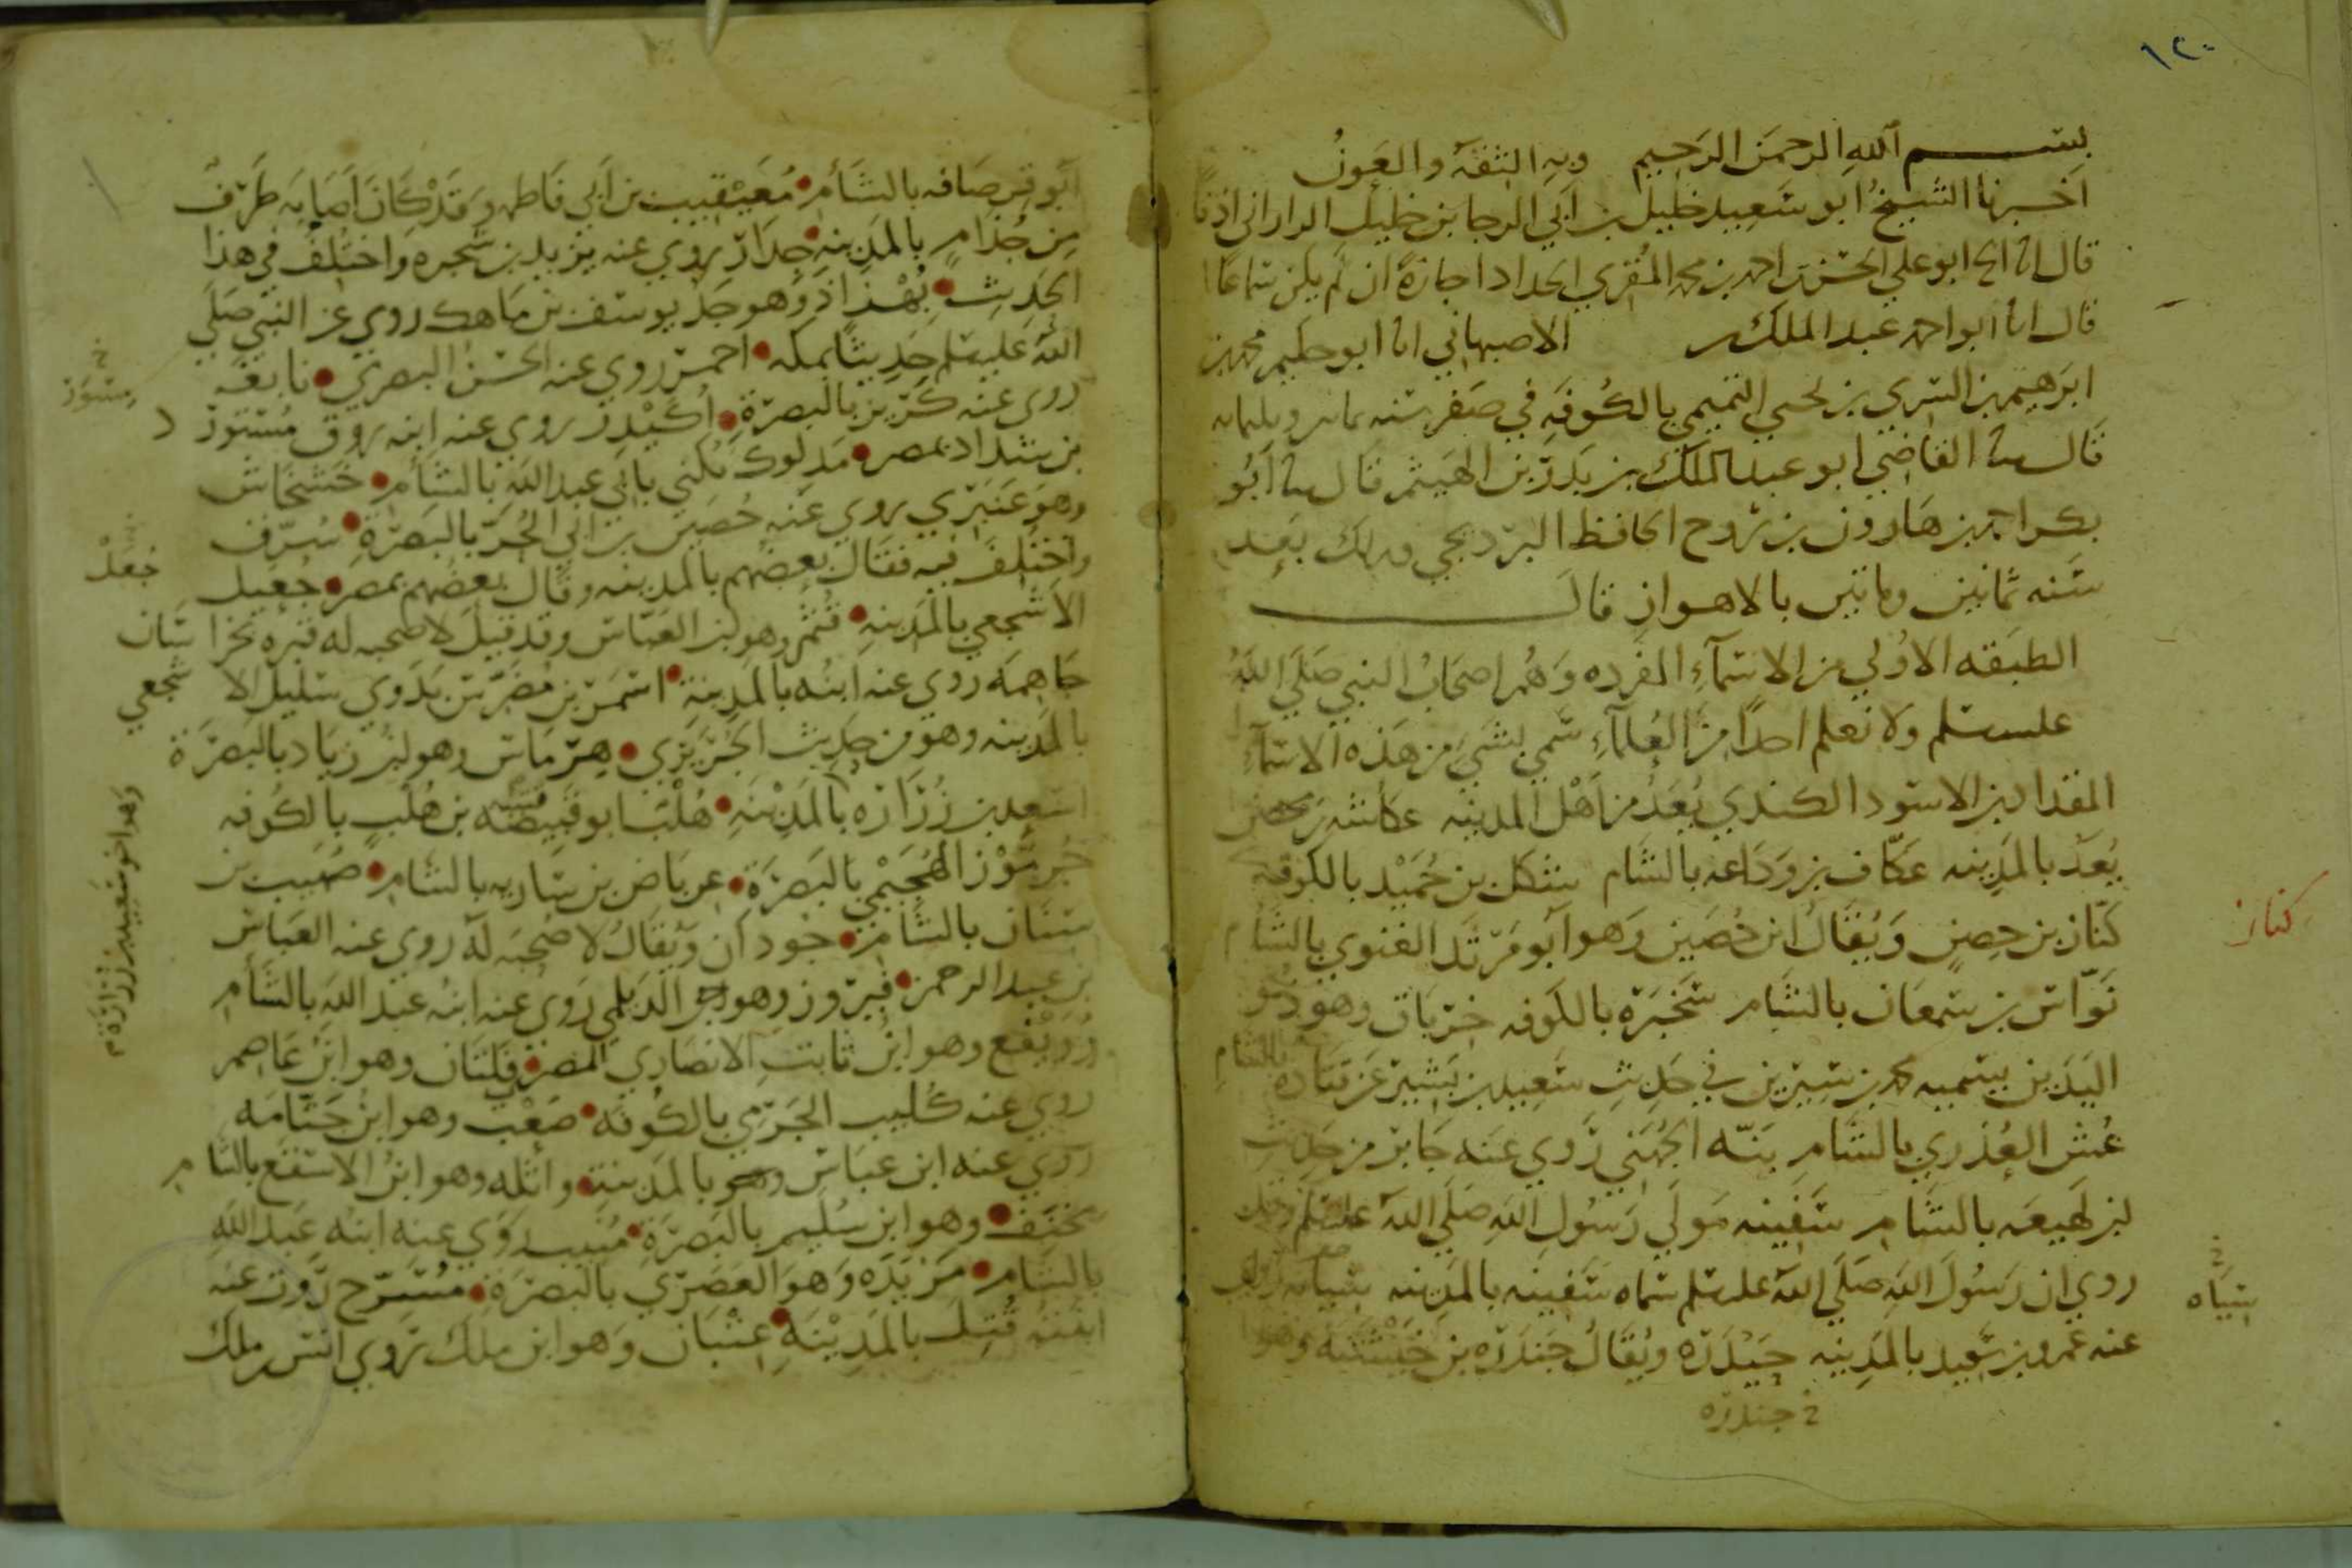 ١٢٠
بســـم الله الرحمن الرحيم وبه الثقة والعون
اخبرنا الشيخ ابو سعيد خليل بن ابي الرجا بن خليل الداراني اذنًا
قال انا ابو علي الحسن بن احمد بن محمد المقري الحداد اجازةً ان لم يكن سماعًا
قال انا ابو احمد عبد الملك بن الاصبهاني انا ابو حكيم محمد بن
ابرهيم بن السري بن يحيى التميمي بالكوفه في صفر سنه
قال سا القاضي ابو عبد الملك بن بدر بن الهيثم قال سا ابو
بكر احمد بن هارون بن روح الحافظ البرديجي
سنه ثمانين وماتين بالاهواز قال
الطبقه الاولى من الاسماء المفرده وهم اصحاب النبي صلى الله
عليه سلم ولا نعلم احدًا من العلماء سمي بشيء من هذه الاسماء
المقداد بن الاسود الكندي يعد من اهل المدينه عكاشه بن محصن
يعد بالمدينه عكّاف بن وداعه بالشام شكل بن حميد بالكوفه
كناز بن حصن ويقال ابن حصين وهو ابو مرثد الغنوي بالشام
كناز
نوّاس بن سمعان بالشام سخبرة بالكوفه خرباق وهو ذو
اليدين يسميه محمد بن سيرين في حديث سعيد بن بشير عن قتادة بالشام
عُش العذري بالشام بنّه الجهني روى عنه جابر من حديث
ابن لهيعه بالشام سفينه مولى رسول الله صلى الله عليه سلم
روي ان رسول الله صلى الله عليه سلم سماه سفينه بالمدينه سيابه روى
سيابه
عنه عمرو بن سعيد بالمدينه جيدرة ويقال جندرة بن خيشنة وهو
2 جندرة
ابو قرصافه بالشام معيقيب بن ابي فاطمه وقد كان اصابه طرف
من جذام بالمدينه جدار روى عنه يزيد بن شجره واختلف في هذا
الحديث بهذاذ وهو جد يوسف بن ماهك روى عن النبي صلى
الله عليه سلم حديثًا بمكه احمر روى عنه الحسن البصري نابغه
روى عنه كريز بالبصرة اكيدر روى عنه ابنه روق مستور د
بن شداد بمصر مدلوك يكنى بابي عبد الله بالشام خشخاش
وهو عنبري روى عنه حصين بن ابي الحر بالبصرة سرف
واختلف فيه فقال بعضهم بالمدينه وقال بعضهم بمصر جعيل
جعل
الاشجعي بالمدينه قثم وهو ابن العباس وقد قيل لا صحبه له قبره بخراسان
جاهمه روى عنه ابنه بالمدينة اسمر بن مضرس بدوي سليل الاشجعي
بالمدينه وهو من حديث الجريري هرماس وهو ابن زياد بالبصرة
اسعد بن زرارة بالمدينه هلب ابو قبيصه بن هلب بالكوفه
وهو اخو سعيد بن زرارة
جرموز الهجيمي بالبصرة عرباض بن ساريه بالشام صهيب بن
سنان بالشام جودان ويقال لا صحبه له روى عنه العباس
بن عبد الرحمن فيروز وهو الديلمي روى عنه ابنه عبد الله بالشام
رويفع وهو ابن ثابت الانصاري بمصر فلتان وهو ابن عاصم
روى عنه كليب الجرمي بالكوفه صعب وهو ابن جثامه
روى عنه ابن عباس بالمدينة واثله وهو ابن الاسقع بالشام
مخنف وهو ابن سليم بالبصرة منيب روى عنه ابنه عبد الله
بالشام مزيدة وهو العصري بالبصرة مسرح روت عنه
قتل بالمدينه عتبان وهو ابن ملك روى انس بن ملك